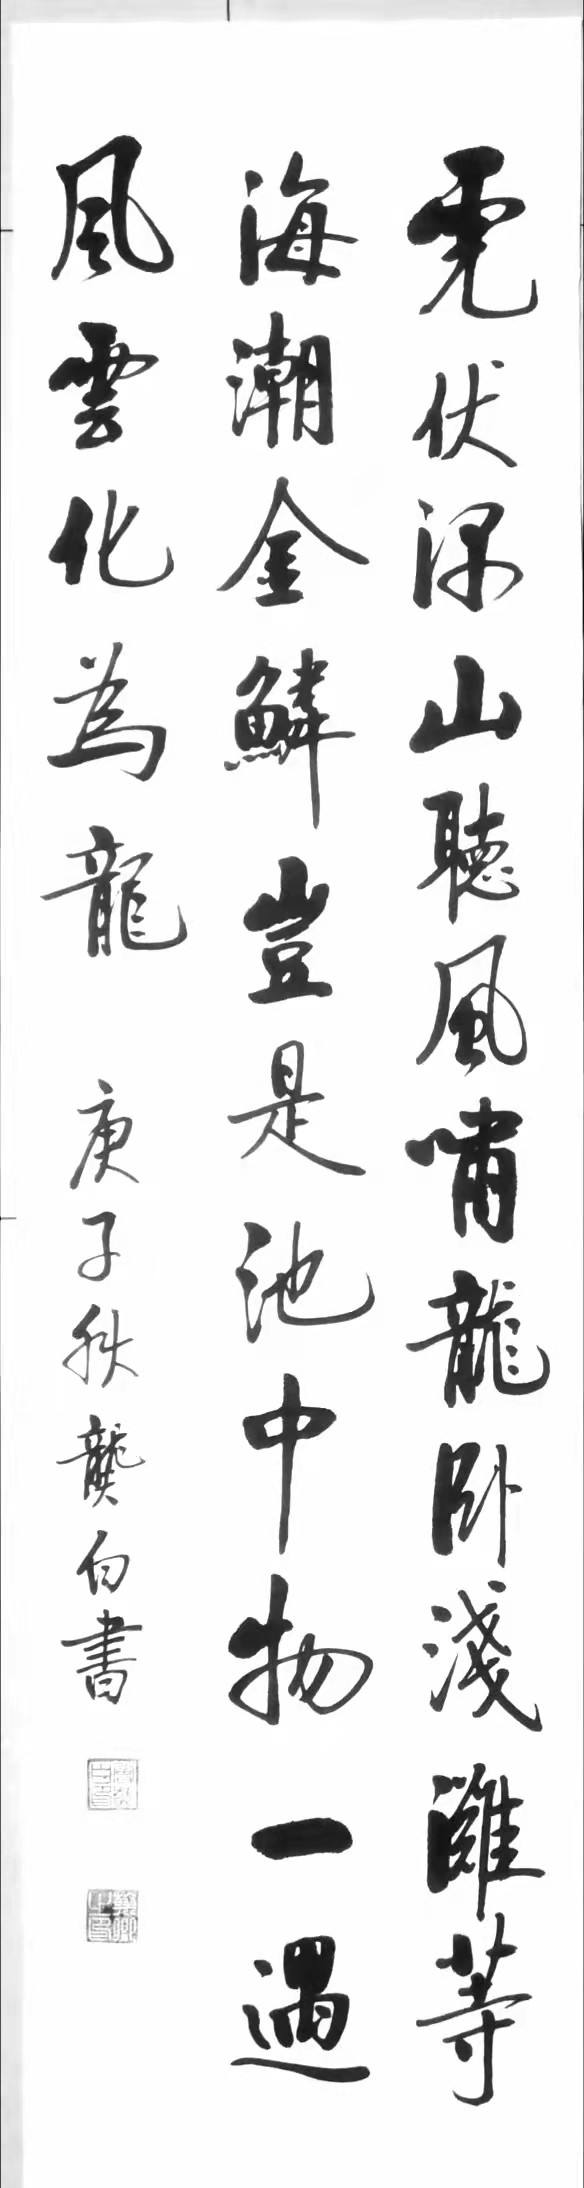 虎伏深山聽風嘯龍卧淺灘等
海潮金鱗豈是池中物一遇
風雲化為龍
庚子秋龔白書